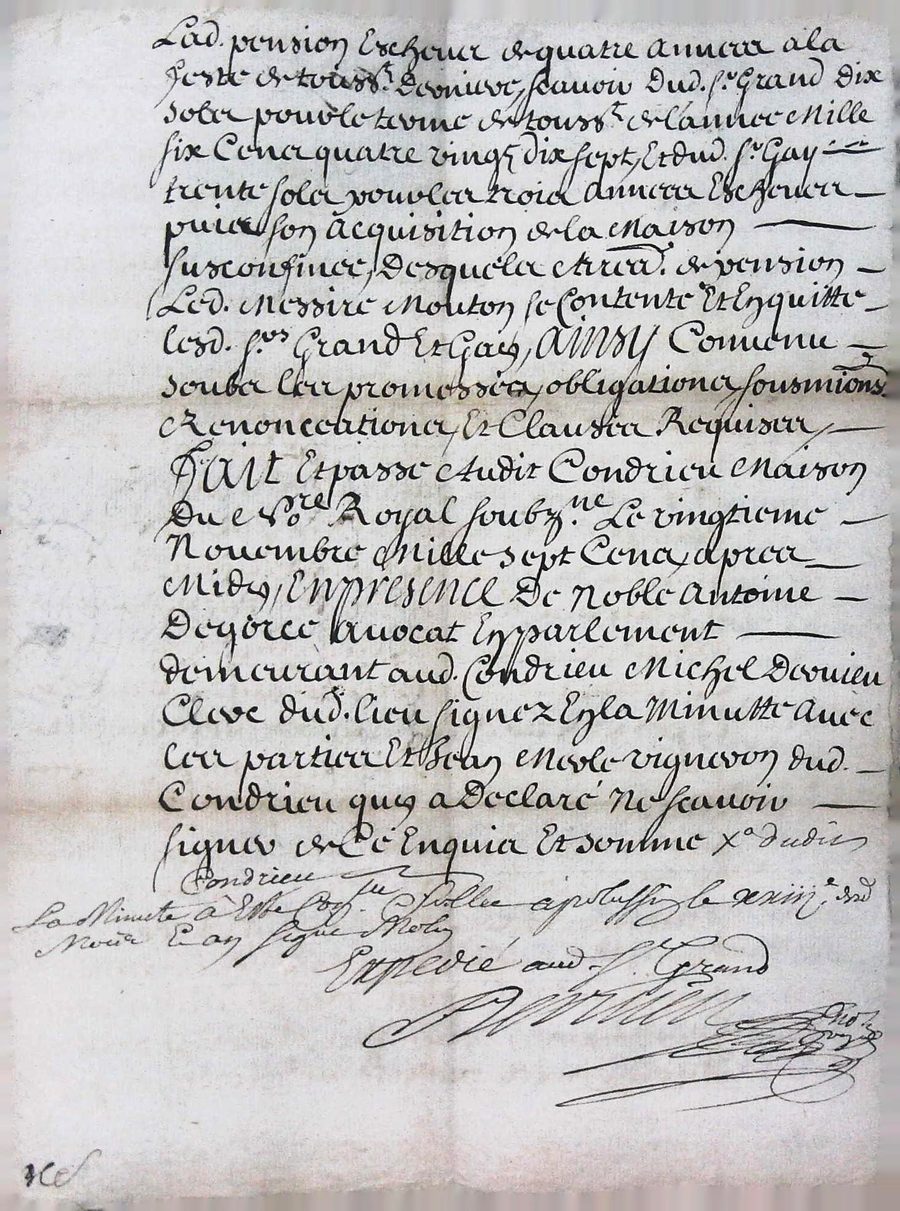 Lad. pension Escheue de quatre années a la
feste de touss.t Derniere, scavoir Dud. s.r Grand dix
solz pour le terme de touss.t de l'année Mille
six Cens quatre vingt dix sept, Et dud. s.r Gay
trente solz pour les trois années Escheues
puis son acquisition de la Maison
susconfinée, Desquels arrea. de pension
Led. Messire Mouton se Contente Et En quitte
lesd. s.rs Grand Et Gay, Ainsy Convenu
soubs les promesses, obligations, sousmions
Renonceations, Et Clauses Requises,
Fait Et passé audit Condrieu Maison
du No.re Royal soubz.ne Le vingtieme
Novembre Mille sept Cens, apres
Midy, En presence De Noble antoine
Degorce avocat En parlement
demeurant aud. Condrieu Michel Dervieu
Clerc dud. lieu signez En la Minutte avec
les parties Et Jean vigneron dud.
Condrieu quy a Declaré Ne scavoir
signer de Ce Enquis Et sommé dudit
Condrieu
La Minute a Esté le
signé
Expedié aud. s.r Grand
Dervieu